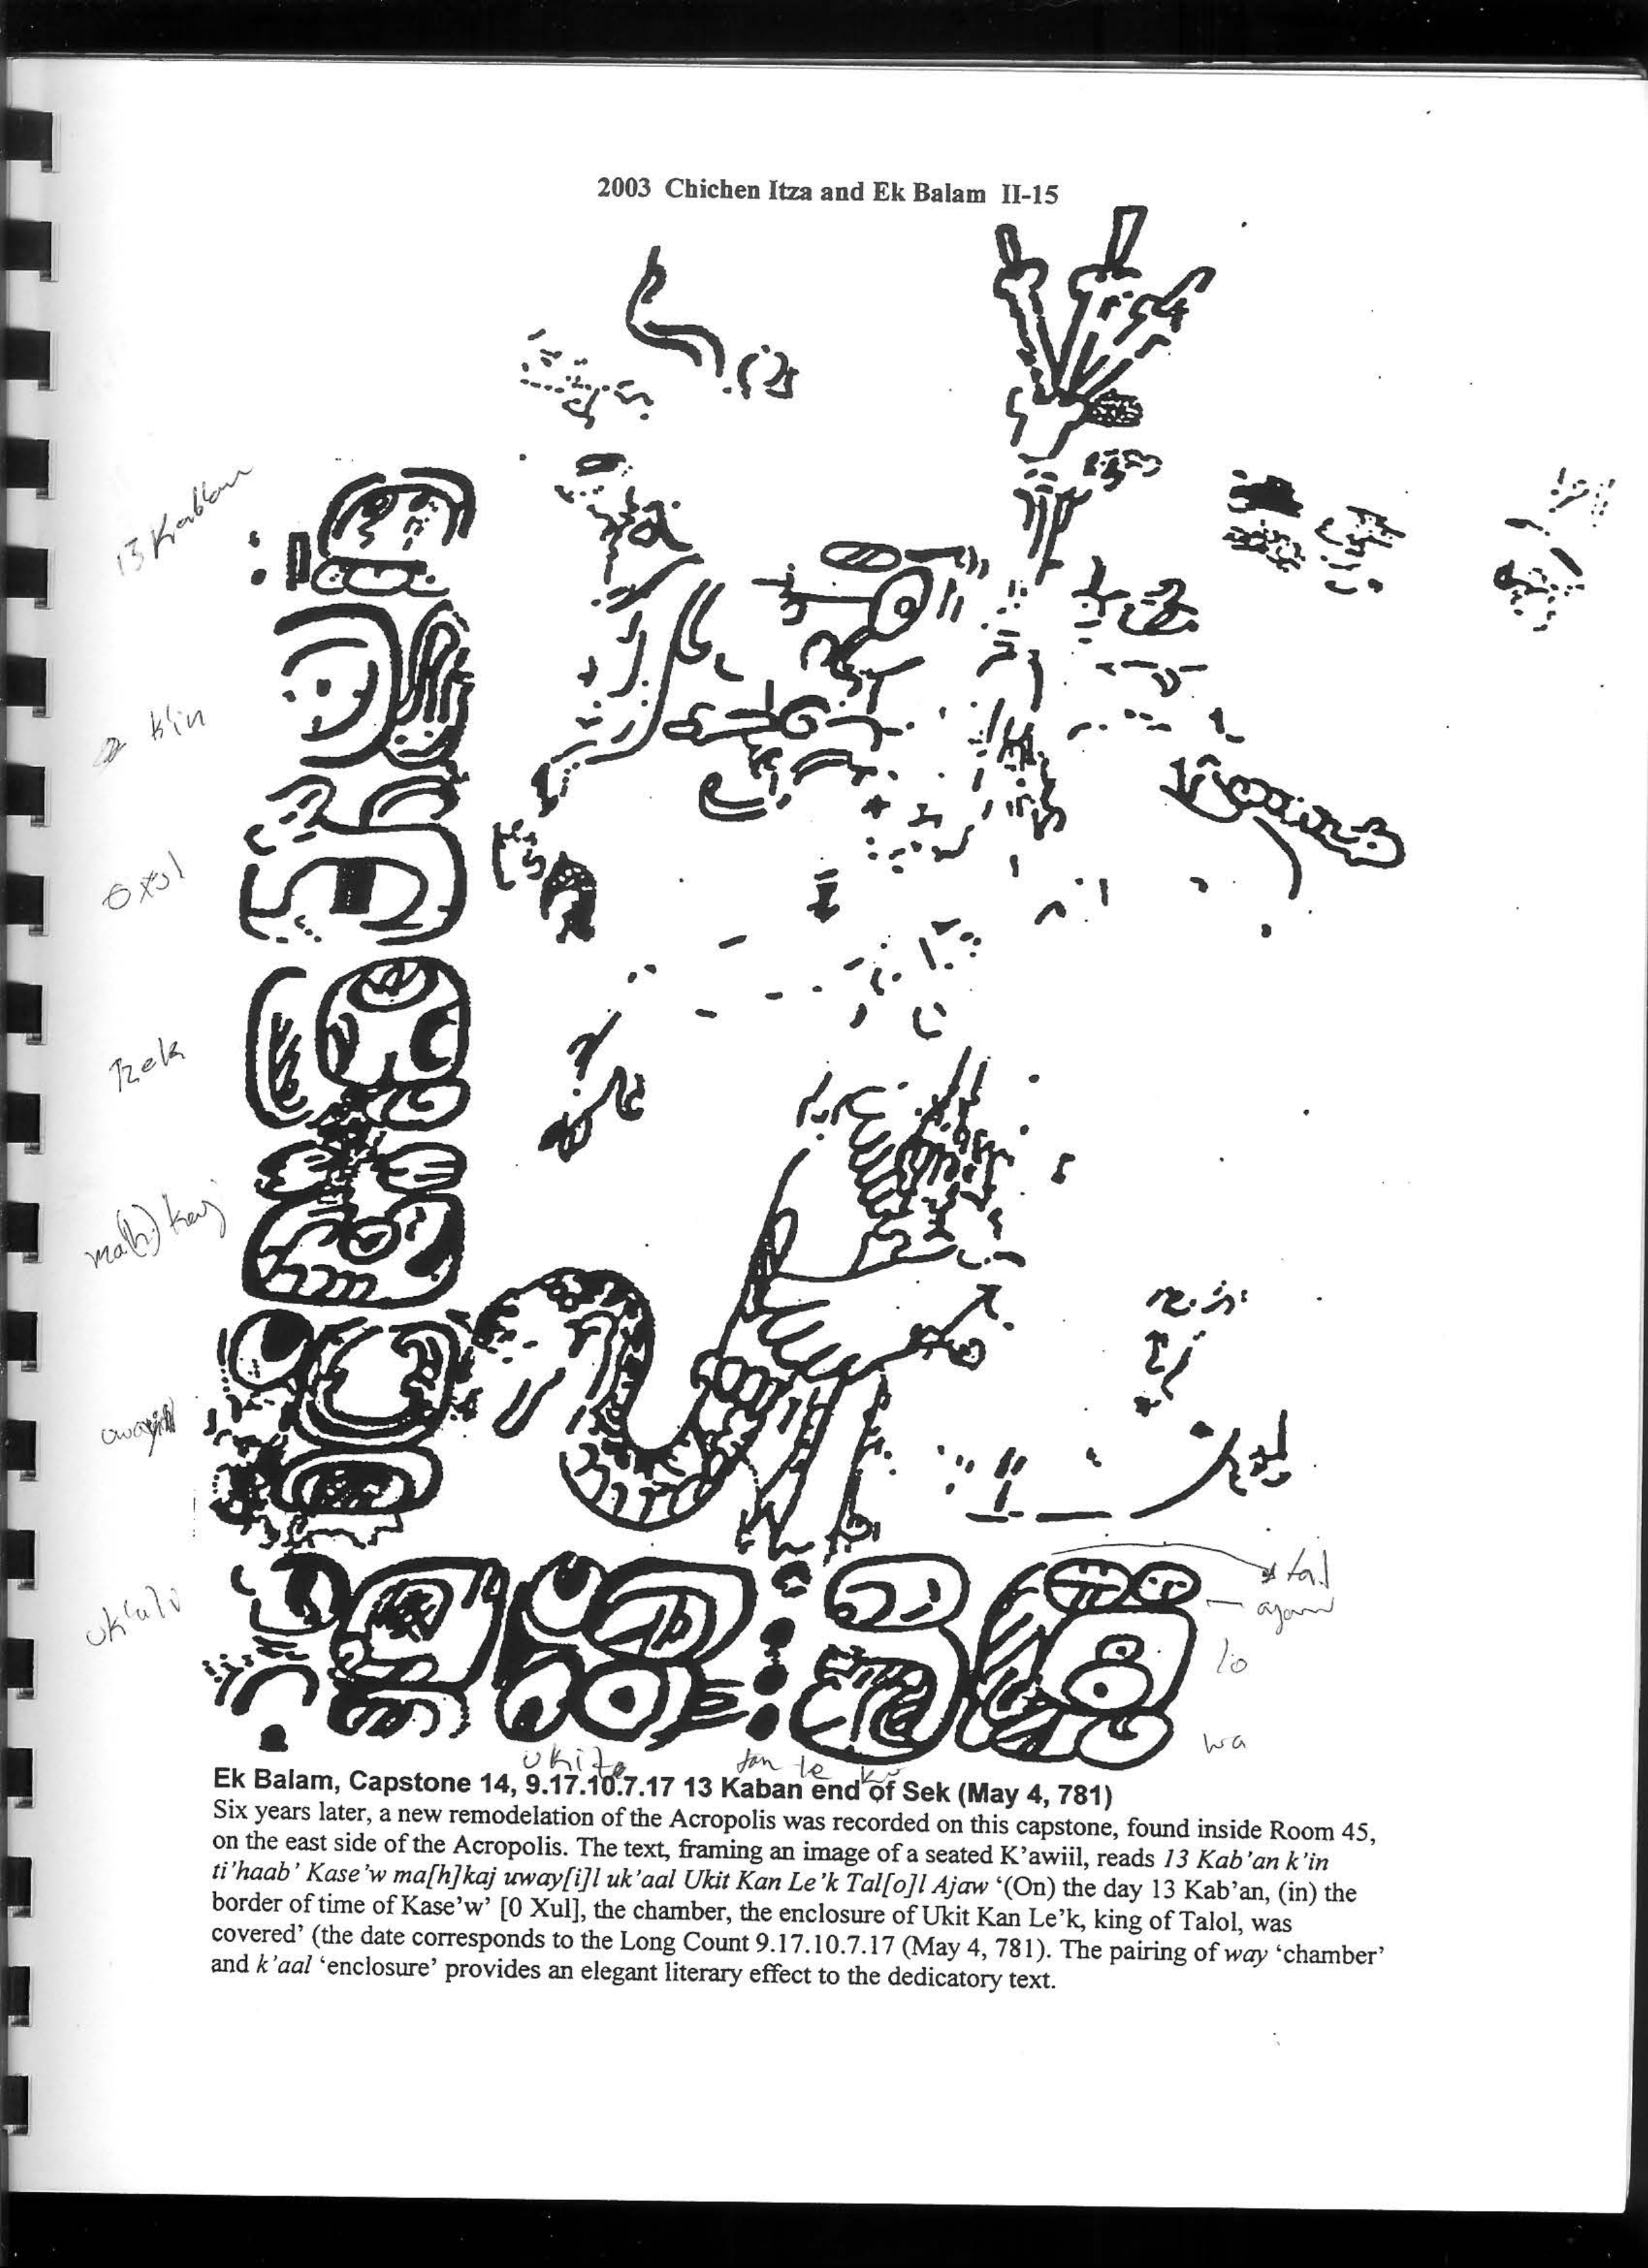 2003 Chichen Itza and Ek Balam II-15
13 Kaban
k'in
0 Xul
Tzek
ma(h) kaj
uk'ali
tal
ajaw
lo
wa
ukite
kan le ku
Ek Balam, Capstone 14, 9.17.10.7.17 13 Kaban end of Sek (May 4, 781)
Six years later, a new remodelation of the Acropolis was recorded on this capstone, found inside Room 45,
on the east side of the Acropolis. The text, framing an image of a seated K'awiil, reads 13 Kab'an k'in
ti'haab' Kase'w ma[h]kaj uway[i]l uk'aal Ukit Kan Le'k Tal[o]l Ajaw '(On) the day 13 Kab'an, (in) the
border of time of Kase'w' [0 Xul], the chamber, the enclosure of Ukit Kan Le'k, king of Talol, was
covered' (the date corresponds to the Long Count 9.17.10.7.17 (May 4, 781). The pairing of way 'chamber'
and k'aal 'enclosure' provides an elegant literary effect to the dedicatory text.